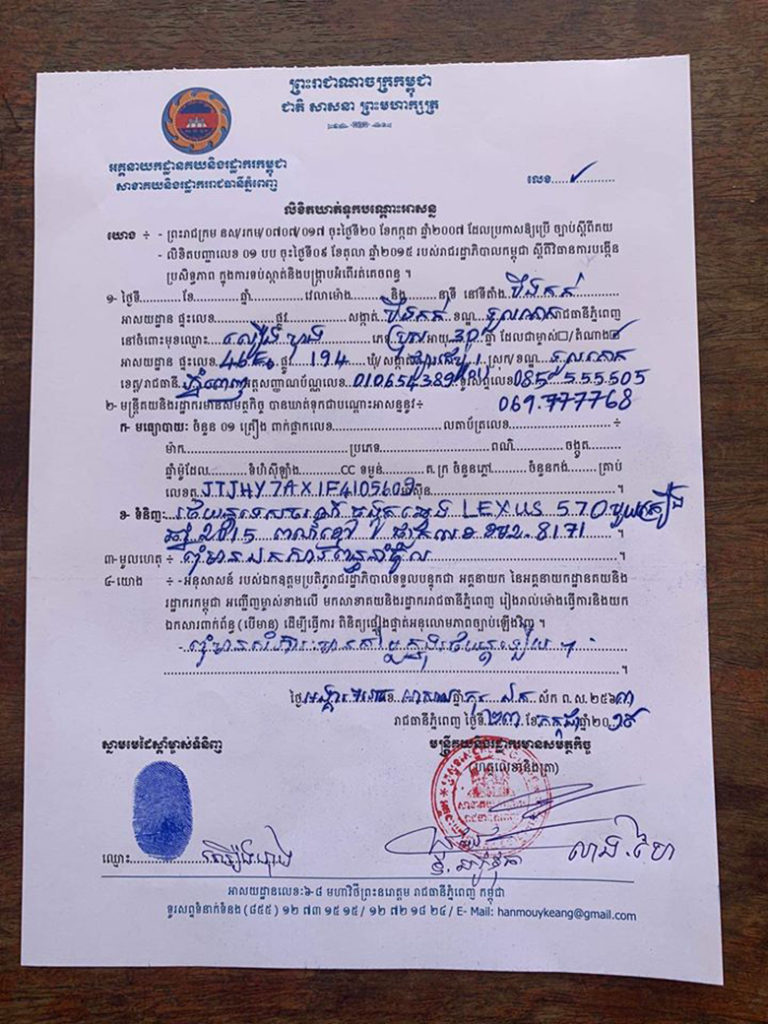 ព្រះរាជាណាចក្រកម្ពុជា
ជាតិ សាសនា ព្រះមហាក្សត្រ
អគ្គនាយកដ្ឋានគយនិងរដ្ឋាករកម្ពុជា
សាខាគយនិងរដ្ឋាកររាជធានីភ្នំពេញ
លេខ..........
លិខិតឃាត់ទុកបណ្តោះអាសន្ន
យោង ÷ - ព្រះរាជក្រម នស/រកម/០៧០៧/០១៧ ចុះថ្ងៃទី២០ ខែកក្កដា ឆ្នាំ២០០៧ ដែលប្រកាសឱ្យប្រើ ច្បាប់ស្តីពីគយ
- លិខិតបញ្ជាលេខ ០១ បប ចុះថ្ងៃទី០៩ ខែតុលា ឆ្នាំ២០១៥ របស់រាជរដ្ឋាភិបាលកម្ពុជា ស្តីពីវិធានការបង្កើន
ប្រសិទ្ធភាព ក្នុងការទប់ស្កាត់និងបង្ក្រាបអំពើរត់គេចពន្ធ ។
១- ថ្ងៃទី..........ខែ..........ឆ្នាំ..........វេលាម៉ោង..........និង..........នាទី នៅទីតាំង បឹងកក់
អាសយដ្ឋាន ផ្ទះលេខ..........ផ្លូវ..........សង្កាត់ បឹងកក់ ខណ្ឌ ទួលគោក រាជធានីភ្នំពេញ
នៅចំពោះមុខឈ្មោះ..........ភេទ ប្រុស អាយុ 30 ឆ្នាំ ដែលជាម្ចាស់□/តំណាង
អាសយដ្ឋាន ផ្ទះលេខ 46 ផ្លូវ 194 ឃុំ/សង្កាត់..........ស្រុក/ខណ្ឌ ទួលគោក
ខេត្ត/រាជធានី ភ្នំពេញ អត្តសញ្ញាណប័ណ្ណលេខ 010654389 ទូរស័ព្ទលេខ 085 555505
២- មន្ត្រីគយនិងរដ្ឋាករមានសមត្ថកិច្ច បានឃាត់ទុកជាបណ្តោះអាសន្ននូវ÷ 069.777768
ក- មធ្យោបាយ: ចំនួន ០១ គ្រឿង ពាក់ផ្លាកលេខ..........លតាប័ត្រលេខ..........÷
ម៉ាក..........ប្រភេទ..........ពណ៌..........ចង្កូត..........
ឆ្នាំម៉ូដែល..........ទំហំស៊ីឡាំង..........CC ទម្ងន់..........គ.ក្រ ចំនួនភ្លៅ..........ចំនួនកង់..........គ្រាប់
លេខតួ JTJHY7AX1F4105609 ម៉ាស៊ីន..........។
ខ- ទំនិញ: LEXUS 570
ឆ្នាំ 2015 ពណ៌ខ្មៅ ផ្លាកលេខ 8171
៣- មូលហេតុ ÷ ពុំមានឯកសារពន្ធនាំចូល ។
៤- យោង ÷ -អនុសាសន៍ របស់ឯកឧត្តមប្រតិភូរាជរដ្ឋាភិបាលទទួលបន្ទុកជា អគ្គនាយក នៃអគ្គនាយកដ្ឋានគយនិង
រដ្ឋាករកម្ពុជា អញ្ជើញម្ចាស់ខាងលើ មកសាខាគយនិងរដ្ឋាកររាជធានីភ្នំពេញ រៀងរាល់ម៉ោងធ្វើការនិងយក
ឯកសារពាក់ព័ន្ធ (បើមាន) ដើម្បីធ្វើការ ពិនិត្យផ្ទៀងផ្ទាត់អនុលោមភាពច្បាប់ឡើងវិញ ។
- ពុំមានសំភារៈ មានតម្លៃក្នុងរថយន្តឡើយ ។
ថ្ងៃ អង្គារ ខែ អាសាឍ ឆ្នាំ កុរ ឯក ស័ក ព.ស. ២៥៦៣
រាជធានីភ្នំពេញ ថ្ងៃទី ២៣ ខែ កក្កដា ឆ្នាំ២០១៩
ស្នាមមេដៃស្តាំម្ចាស់ទំនិញ
មន្ត្រីគយនិងរដ្ឋាករមានសមត្ថកិច្ច
(ហត្ថលេខានិងត្រា)
ឈ្មោះ..........
អាសយដ្ឋានលេខ:៦-៨ មហាវិថីព្រះនរោត្តម រាជធានីភ្នំពេញ កម្ពុជា
ទូរសព្ទទំនាក់ទំនង (៨៥៥) ១២ ៧៣ ១៥ ១៥/ ១២ ៧២ ១៨ ២៤/ E- Mail: hanmouykeang@gmail.com